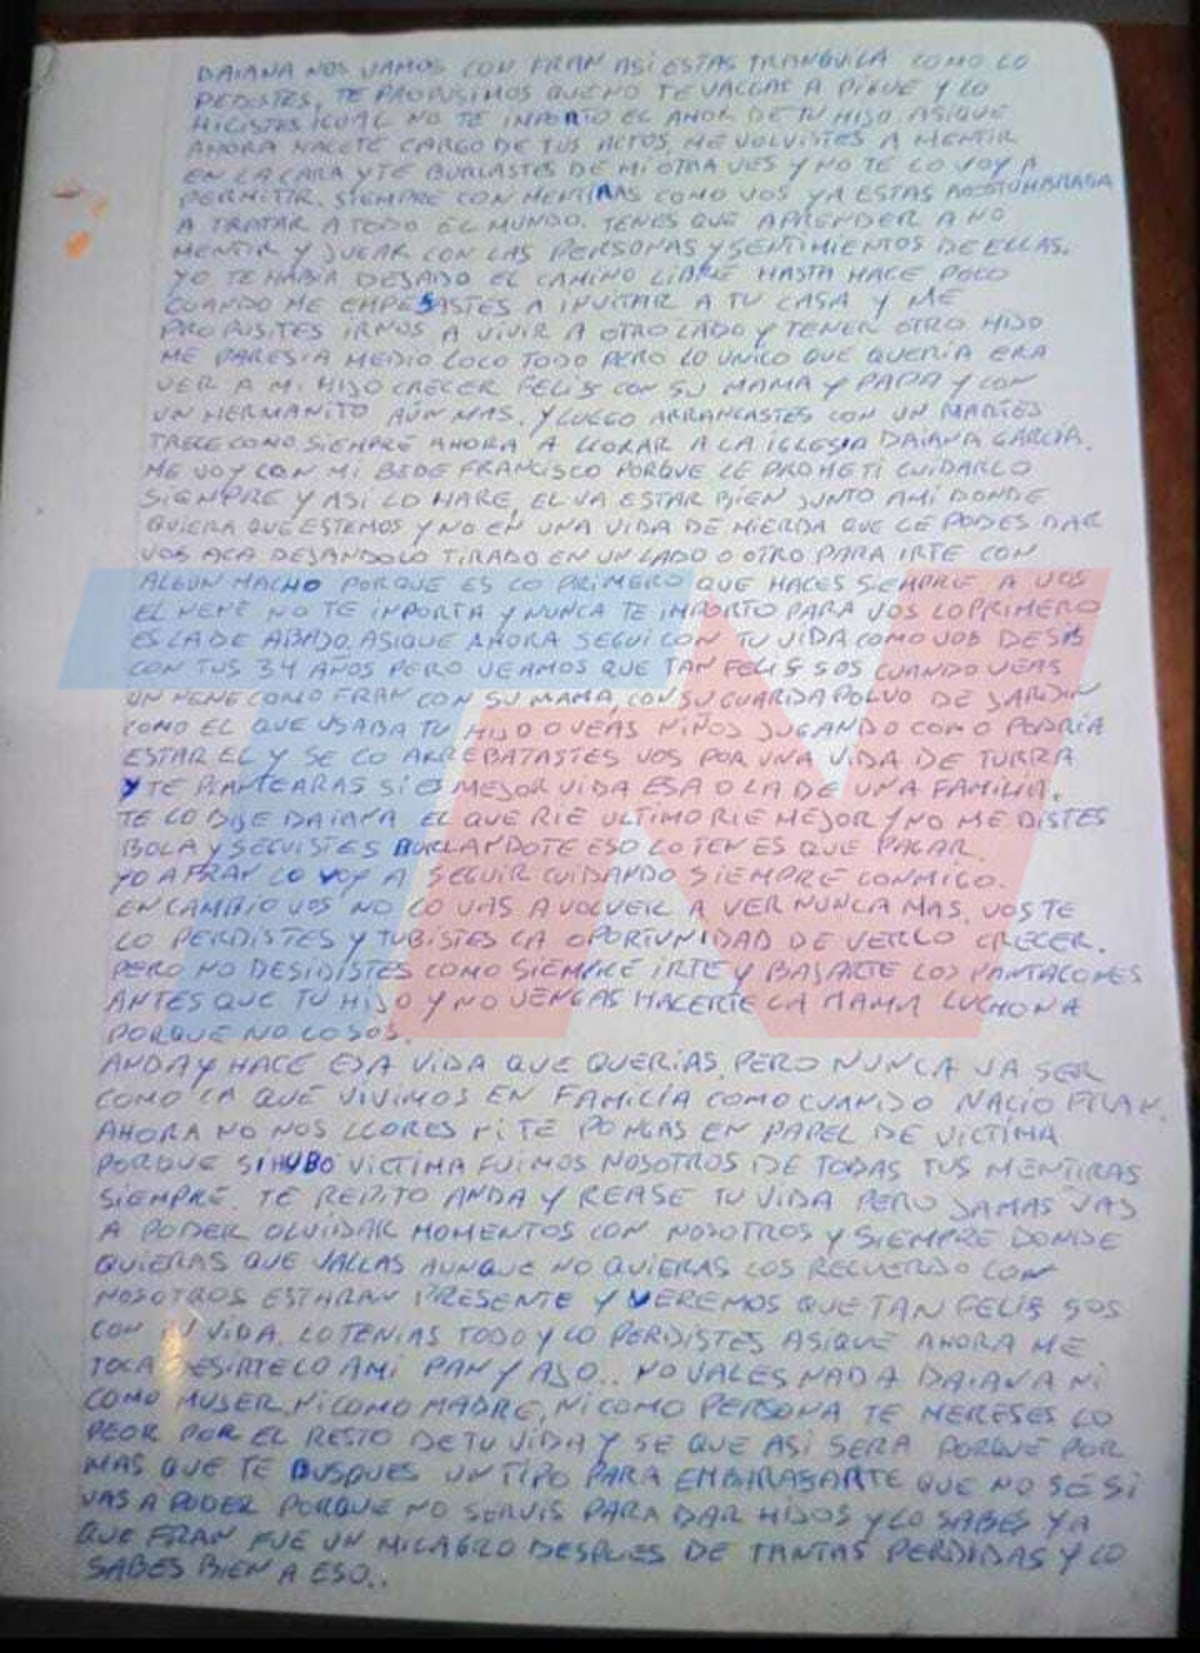 DAIANA NOS VAMOS CON FRAN ASI ESTAS TRANQUILA COMO LO
PEDISTES, TE PROPUSIMOS QUE NO TE VALLAS A PIQUE Y LO
HICISTES IGUAL NO TE INPORTO EL AMOR DE TU HIJO ASIQUE
AHORA HACETE CARGO DE TUS ACTOS, ME VOLVISTES A MENTIR
EN LA CARA Y TE BURLASTES DE MI OTRA VES Y NO TE LO VOY A
PERMITIR. SIEMPRE CON MENTIRAS COMO VOS YA ESTAS ACOSTUMBRADA
A TRATAR A TODO EL MUNDO. TENES QUE APRENDER A NO
MENTIR Y JUGAR CON LAS PERSONAS Y SENTIMIENTOS DE ELLAS.
YO TE HABIA DEJADO EL CAMINO LIBRE HASTA HACE POCO
CUANDO ME EMPESASTES A INVITAR A TU CASA Y ME
PROPUSITES IRNOS A VIVIR A OTRO LADO Y TENER OTRO HIJO
ME PARESIA MEDIO LOCO TODO PERO LO UNICO QUE QUERIA ERA
VER A MI HIJO CRECER FELIS CON SU MAMA Y PAPA Y CON
UN HERMANITO AÚN MAS. Y LUEGO ARRANCASTES CON UN MARTES
TRECE COMO SIEMPRE AHORA A LLORAR A LA IGLESIA DAIANA GARCIA.
ME VOY CON MI BEBE FRANCISCO PORQUE LE PROMETI CUIDARLO
SIEMPRE Y ASI LO HARE, EL VA ESTAR BIEN JUNTO AMI DONDE
QUIERA QUE ESTEMOS Y NO EN UNA VIDA DE MIERDA QUE LE PODES DAR
VOS ACA DEJANDOLO TIRADO EN UN LADO O OTRO PARA IRTE CON
ALGUN MACHO PORQUE ES LO PRIMERO QUE HACES SIEMPRE A VOS
EL NENE NO TE INPORTA Y NUNCA TE IMPORTO PARA VOS LO PRIMERO
ES LA DE ABAJO. ASIQUE AHORA SEGUI CON TU VIDA COMO VOS DESIS
CON TUS 34 AÑOS PERO VEAMOS QUE TAN FELIS SOS CUANDO VEAS
UN NENE COMO FRAN CON SU MAMÁ, CON SU GUARDAPOLVO DE JARDIN
COMO EL QUE USABA TU HIJO O VEAS NIÑOS JUGANDO COMO PODRIA
ESTAR EL Y SE LO ARREBATASTES VOS POR UNA VIDA DE TURRA
Y TE PLANTEARAS SI ES MEJOR VIDA ESA O LA DE UNA FAMILIA.
TE LO DIJE DAIANA EL QUE RIE ULTIMO RIE MEJOR Y NO ME DISTES
BOLA Y SEGUISTES BURLANDOTE ESO LO TENES QUE PAGAR.
YO A FRAN LO VOY A SEGUIR CUIDANDO SIEMPRE CONMIGO.
EN CAMBIO VOS NO LO VAS A VOLVER A VER NUNCA MAS. VOS TE
LO PERDISTES Y TUBISTES LA OPORTUNIDAD DE VERLO CRECER.
PERO NO DESIDISTES COMO SIEMPRE IRTE Y BAJARTE LOS PANTALONES
ANTES QUE TU HIJO Y NO VENGAS HACERTE LA MAMA LUCHONA
PORQUE NO LO SOS.
ANDA Y HACE ESA VIDA QUE QUERIAS, PERO NUNCA VA SER
COMO LA QUE VIVIMOS EN FAMILIA COMO CUANDO NACIO FRAN.
AHORA NO NOS LLORES NI TE PONGAS EN PAPEL DE VICTIMA
PORQUE SI HUBO VICTIMA FUIMOS NOSOTROS DE TODAS TUS MENTIRAS
SIEMPRE. TE REPITO ANDA Y REASE TU VIDA PERO JAMAS VAS
A PODER OLVIDAR MOMENTOS CON NOSOTROS Y SIEMPRE DONDE
QUIERAS QUE VALLAS AUNQUE NO QUIERAS LOS RECUERDO CON
NOSOTROS ESTARAN PRESENTE Y VEREMOS QUE TAN FELIS SOS
CON TU VIDA. LO TENIAS TODO Y LO PERDISTES ASIQUE AHORA ME
TOCA DESIRTELO AMI PAN Y AJO.. NO VALES NADA DAIANA NI
COMO MUJER, NI COMO MADRE, NI COMO PERSONA TE MERESES LO
PEOR POR EL RESTO DE TU VIDA Y SE QUE ASI SERA PORQUE POR
MAS QUE TE BUSQUES UN TIPO PARA EMBARASARTE QUE NO SÉ SI
VAS A PODER PORQUE NO SERVIS PARA DAR HIJOS Y LO SABES YA
QUE FRAN FUE UN MILAGRO DESPUES DE TANTAS PERDIDAS Y LO
SABES BIEN A ESO..
TN